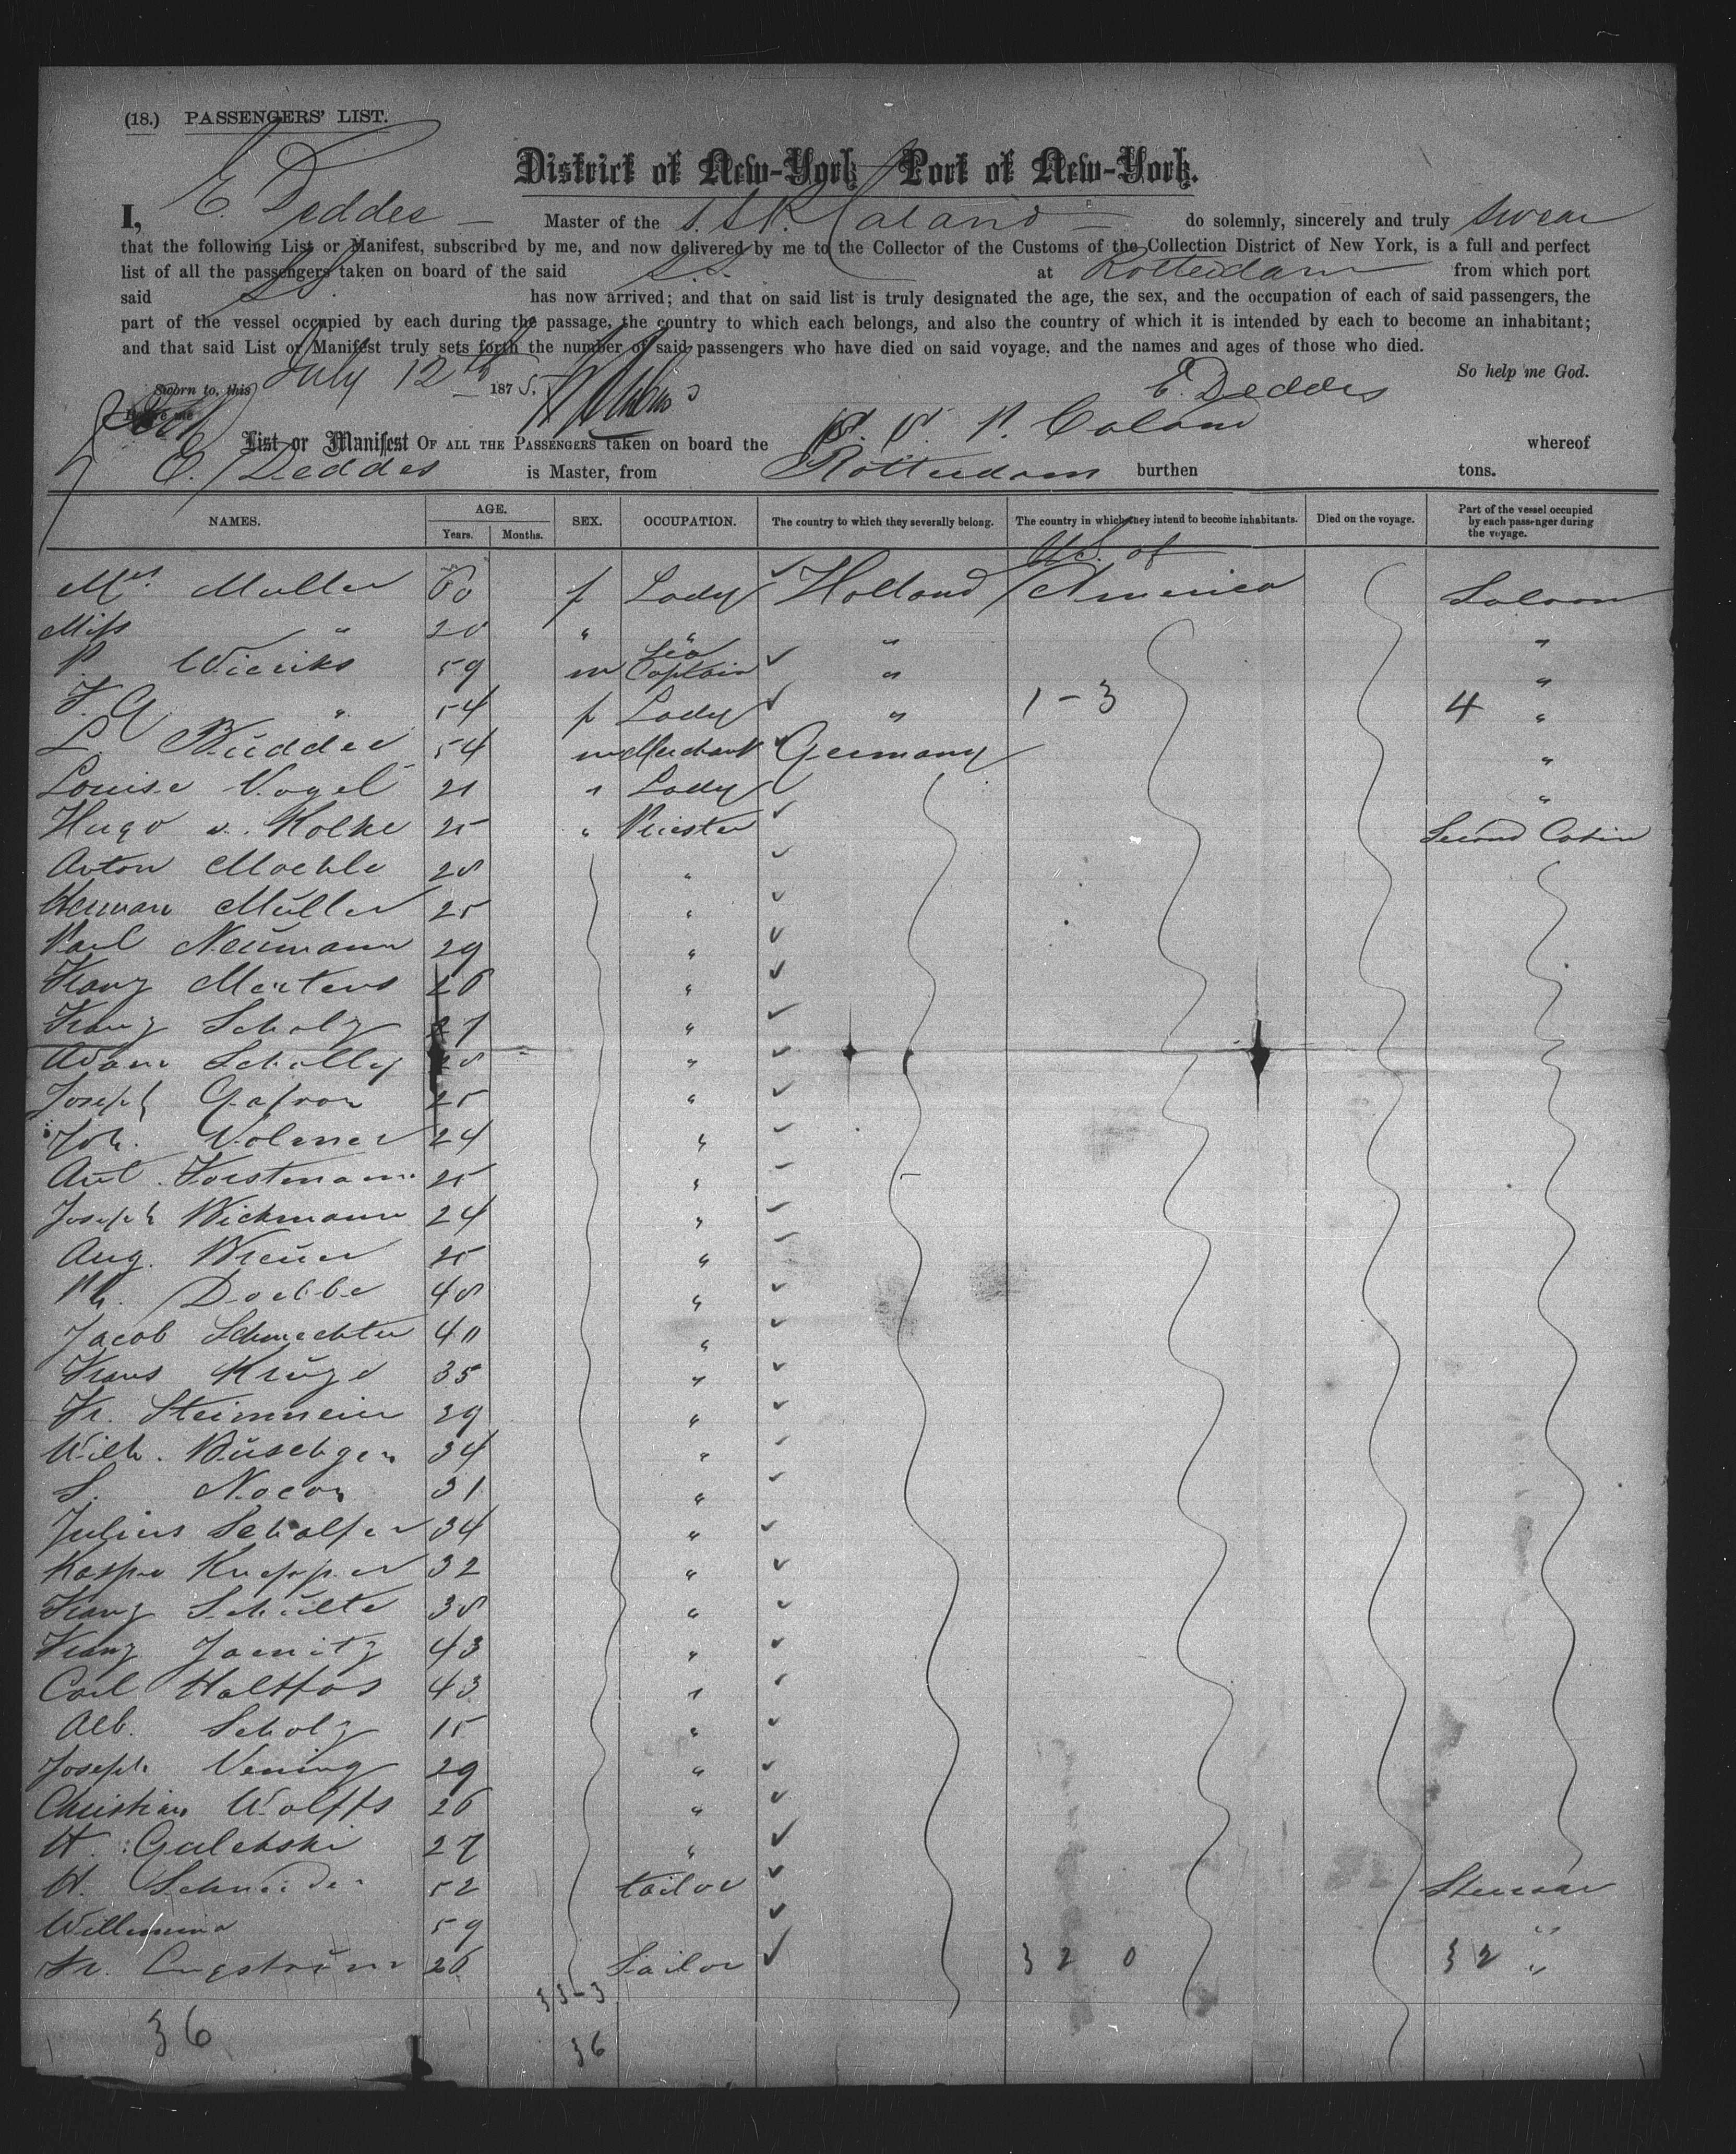 (18.) PASSENGERS' LIST.
District of New-York Port of New-York.
I, E. Deddes Master of the S.S. P. Caland do solemnly, sincerely and truly swear
that the following List or Manifest, subscribed by me, and now delivered by me to the Collector of the Customs of the Collection District of New York, is a full and perfect
list of all the passengers taken on board of the said S.S. at Rotterdam from which port
said S.S. has now arrived; and that on said list is truly designated the age, the sex, and the occupation of each of said passengers, the
part of the vessel occupied by each during the passage, the country to which each belongs, and also the country of which it is intended by each to become an inhabitant;
and that said List or Manifest truly sets forth the number of said passengers who have died on said voyage, and the names and ages of those who died.
So help me God.
Sworn to, this July 12th 1875. E. Deddes
Before me
List or Manifest OF ALL THE PASSENGERS taken on board the S. S. P. Caland whereof
E. Deddes is Master, from Rotterdam burthen tons.
NAMES. AGE. Years. Months. SEX. OCCUPATION. The country to which they severally belong. The country in which they intend to become inhabitants. Died on the voyage. Part of the vessel occupied by each passenger during the voyage.
Mrs. Muller 60 f Lady Holland U.S. of America Saloon
Miss " 20 " " " "
P. Wieriks 59 m Sea Captain " "
" 54 f Lady " 1-3 4 "
L. Büdder 54 m Merchant Germany "
Louise Vogel 21 " Lady "
Hugo v. Kolke 25 " Priester Second Cabin
Anton Moehle 28 "
Herman Müller 25 "
Paul Neümann 29 "
Franz Mertens 26 "
Franz Scholz 27 "
Adam Scholly 28 "
Joseph Gafron 25 "
Joh. Volmer 24 "
Ant. Forstmann 25 "
Joseph Wickmann 24 "
Aug. Breüer 25 "
Ph. Doebbe 48 "
Jacob Schmechter 40 "
Frans Krüge 35 "
Fr. Steinmeier 29 "
Wilh. Büschgen 34 "
S. Nocon 31 "
Julius Schalfer 34 "
Kaspar Knepper 32 "
Franz Schülte 38 "
Franz Janitz 43 "
Carl Haltfos 43 "
Alb. Scholz 15 "
Joseph Vening 29 "
Christian Wolffs 26 "
H. Galetski 27 "
H. Schneider 52 tailor Steerage
Willemina 59 "
Fr. Engström 26 Sailor 32 0 32 "
33-3
36 36